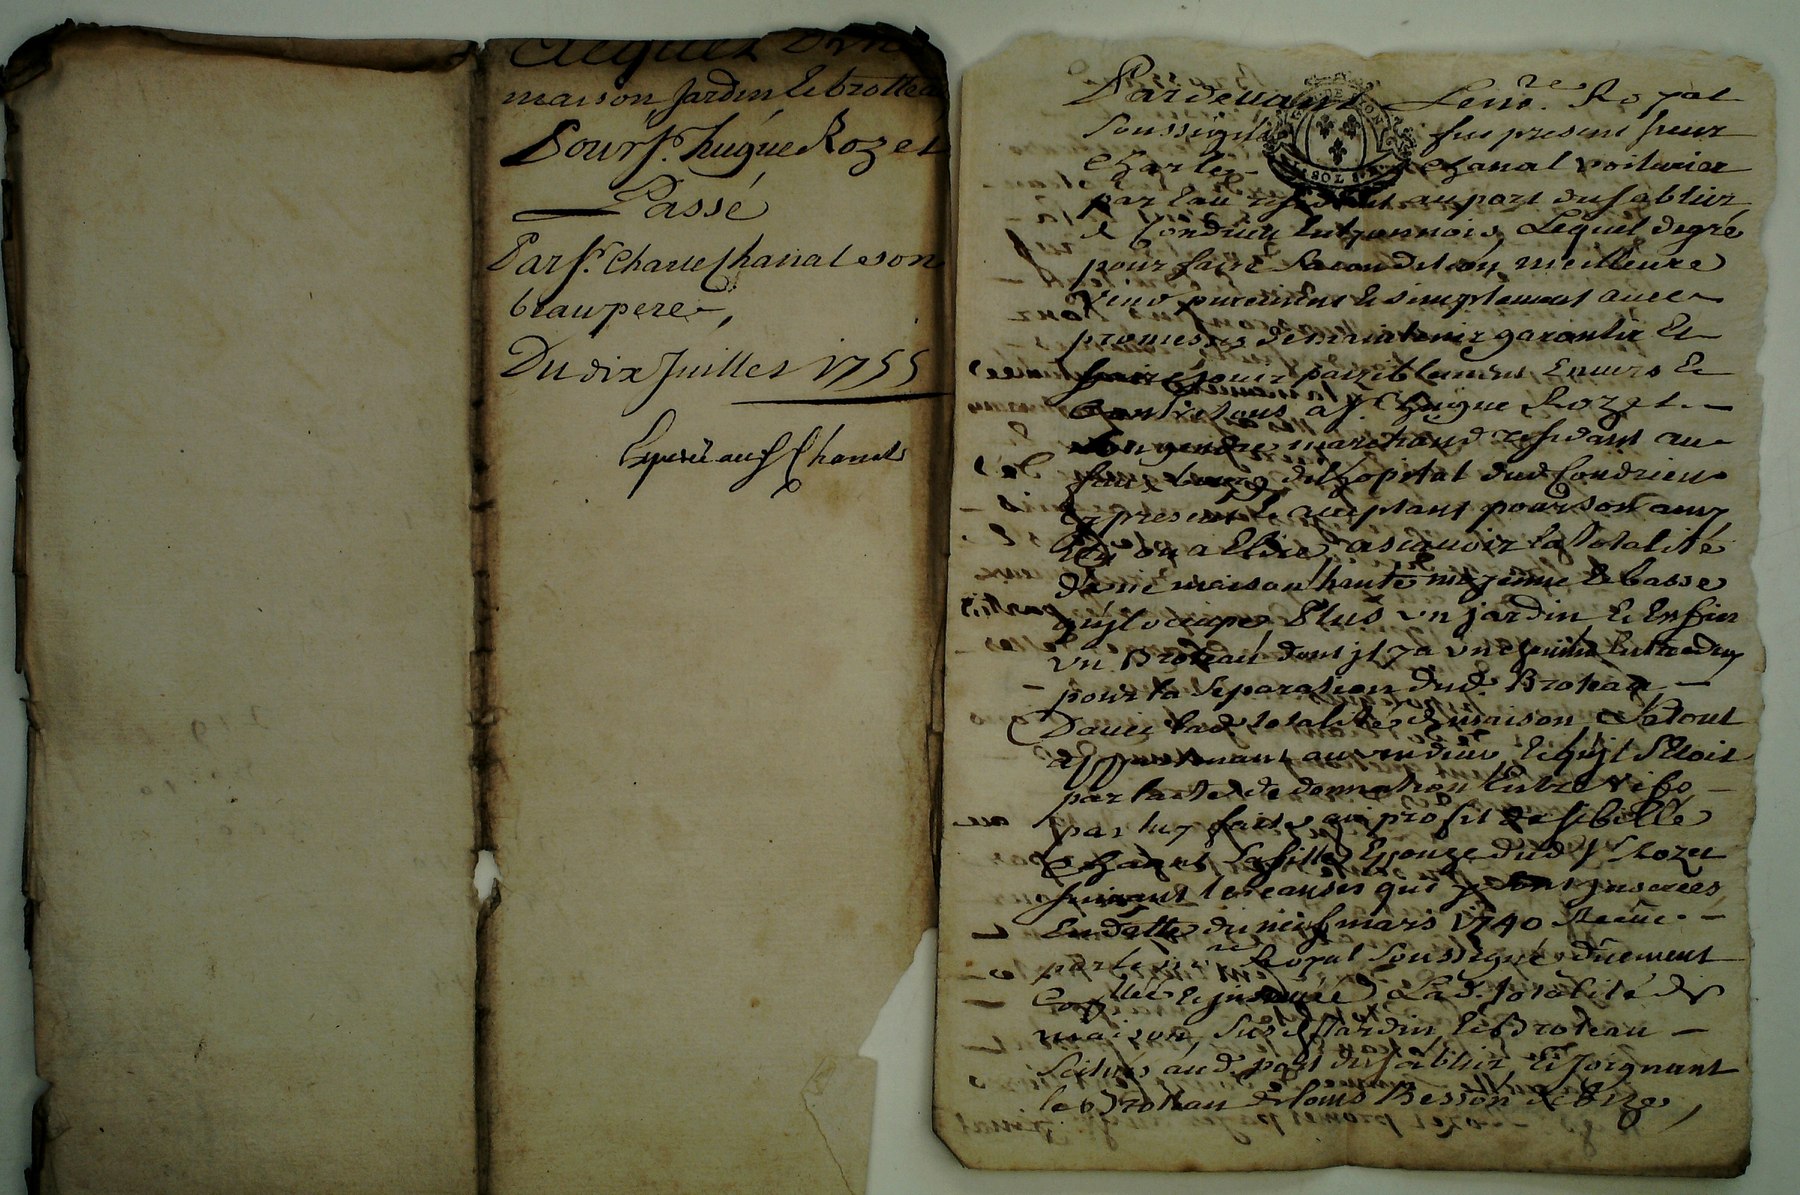 Acquet d'une
maison Jardin et brotteau
Pour Sr. hugue Rozet
Passé
Par Sr. Charle Chanal son
beaupere,
Du dix Juillet 1755
Expedié au Sr Chanal
Pardevant Le nore. Royal
soussigné fut present sieur
Charle Chanal voiturier
par Eau residant au port du sablier
de Condrieu Lequel de gré
pour faire sa condition meilleure
vend purement et simplement avec
promesses de maintenir garantir Et
faire jouir paziblement Envers Et
Contre tous a Sr. hugue Rozet
son gendre marchand residant au
faubourg de l'hopital dud Condrieu
Ez present Et acceptant pour son amy
Elu ou a Elire ascavoir La Totalité
d'une maison haute moyenne Et basse
quyl occupe Plus un jardin Et Enfin
un Broteau dont jl y a un Entredeux
pour la Separation dud. Broteau
Davec lad totalité de maison Le tout
appartenant au vendeur Et quyl s'étoit
par lacte de donnation Entre Vifs
par luy faite au profit de sibelle
Chanal sa fille Epouze dud Sr Rozet
suivant les causes qui y sont jnserees
En datte du neuf mars 1740 Receüe
par le nre Royal soussigné düement
Collée et jnsinuée Lad. totalité de
maison, susd Jardin Et Broteau
scitués aud. port du sablier, Et Joignant
le Brotteau de Louis Besson de bize,